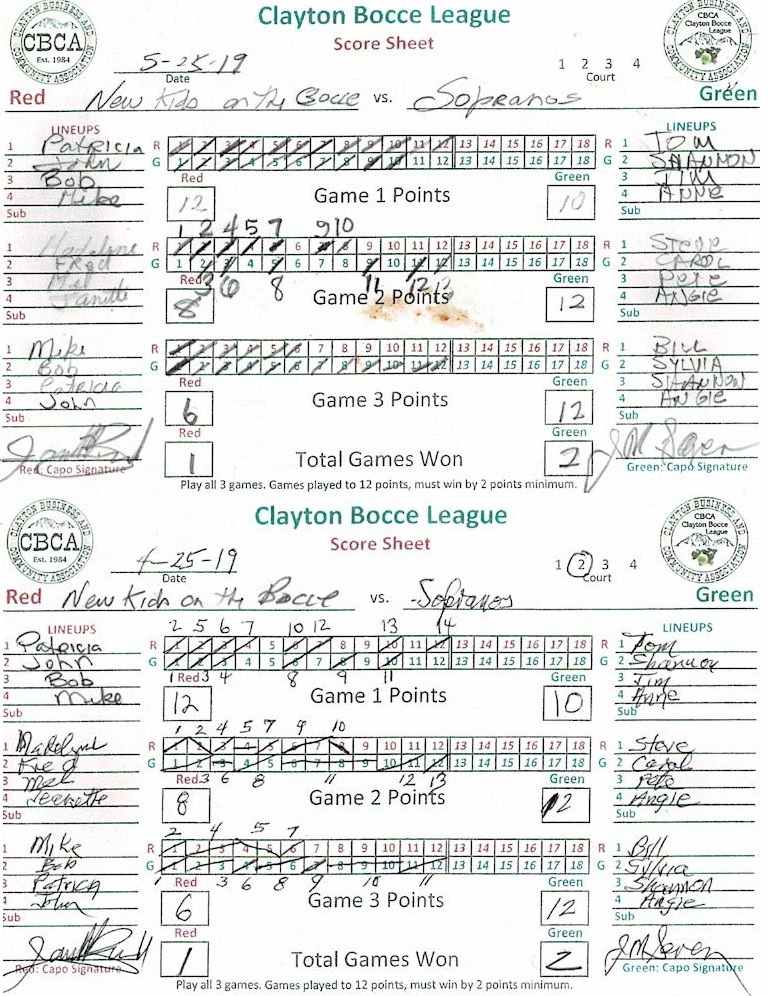 CLAYTON BUSINESS AND COMMUNITY ASSOCIATION
CBCA
Est. 1984
Clayton Bocce League
Score Sheet
CLAYTON BUSINESS AND COMMUNITY ASSOCIATION
CBCA
Clayton Bocce League
5-25-19
Date
1 2 3 4
Court
Red New Kids on the Bocce vs. Sopranos Green
LINEUPS LINEUPS
1 Patricia R 1 2 3 4 5 6 7 8 9 10 11 12 13 14 15 16 17 18 R 1 TOM
2 John G 1 2 3 4 5 6 7 8 9 10 11 12 13 14 15 16 17 18 G 2 SHANNON
3 Bob Red Green 3 TIM
4 Mike 12 Game 1 Points 10 4 ANNE
Sub Sub
1 2 4 5 7 9 10
1 Madelyne R 1 2 3 4 5 6 7 8 9 10 11 12 13 14 15 16 17 18 R 1 Steve
2 FRed G 1 2 3 4 5 6 7 8 9 10 11 12 13 14 15 16 17 18 G 2 CAROL
3 Mel Red 3 6 8 11 12 13 Green 3 Pete
4 8 Game 2 Points 12 4 ANGIE
Sub Sub
1 Mike R 1 2 3 4 5 6 7 8 9 10 11 12 13 14 15 16 17 18 R 1 BILL
2 Bob G 1 2 3 4 5 6 7 8 9 10 11 12 13 14 15 16 17 18 G 2 SYLVIA
3 Patricia Red Green 3 SHANNON
4 John 6 Game 3 Points 12 4 ANGIE
Sub Red Green Sub
1 Total Games Won 2
Red: Capo Signature Green: Capo Signature
Play all 3 games. Games played to 12 points, must win by 2 points minimum.
CLAYTON BUSINESS AND COMMUNITY ASSOCIATION
CBCA
Est. 1984
Clayton Bocce League
Score Sheet
CLAYTON BUSINESS AND COMMUNITY ASSOCIATION
CBCA
Clayton Bocce League
4-25-19
Date
1 2 3 4
Court
Red New Kids on the Bocce vs. Sopranos Green
LINEUPS 2 5 6 7 10 12 13 14 LINEUPS
1 Patricia R 1 2 3 4 5 6 7 8 9 10 11 12 13 14 15 16 17 18 R 1 Tom
2 John G 1 2 3 4 5 6 7 8 9 10 11 12 13 14 15 16 17 18 G 2 Shannon
3 Bob 1 Red 3 4 8 9 11 Green 3 Tim
4 Mike 12 Game 1 Points 10 4 Anne
Sub Sub
1 2 4 5 7 9 10
1 Madelyne R 1 2 3 4 5 6 7 8 9 10 11 12 13 14 15 16 17 18 R 1 Steve
2 Fred G 1 2 3 4 5 6 7 8 9 10 11 12 13 14 15 16 17 18 G 2 Carol
3 Mel Red 3 6 8 11 12 13 Green 3 Pete
4 Jeanette 8 Game 2 Points 12 4 Angie
Sub Sub
2 4 5 7
1 Mike R 1 2 3 4 5 6 7 8 9 10 11 12 13 14 15 16 17 18 R 1 Bill
2 Bob G 1 2 3 4 5 6 7 8 9 10 11 12 13 14 15 16 17 18 G 2 Sylvia
3 Patricia 1 Red 3 6 8 9 10 11 Green 3 Shannon
4 John 6 Game 3 Points 12 4 Angie
Sub Red Green Sub
1 Total Games Won 2
Red: Capo Signature Green: Capo Signature
Play all 3 games. Games played to 12 points, must win by 2 points minimum.